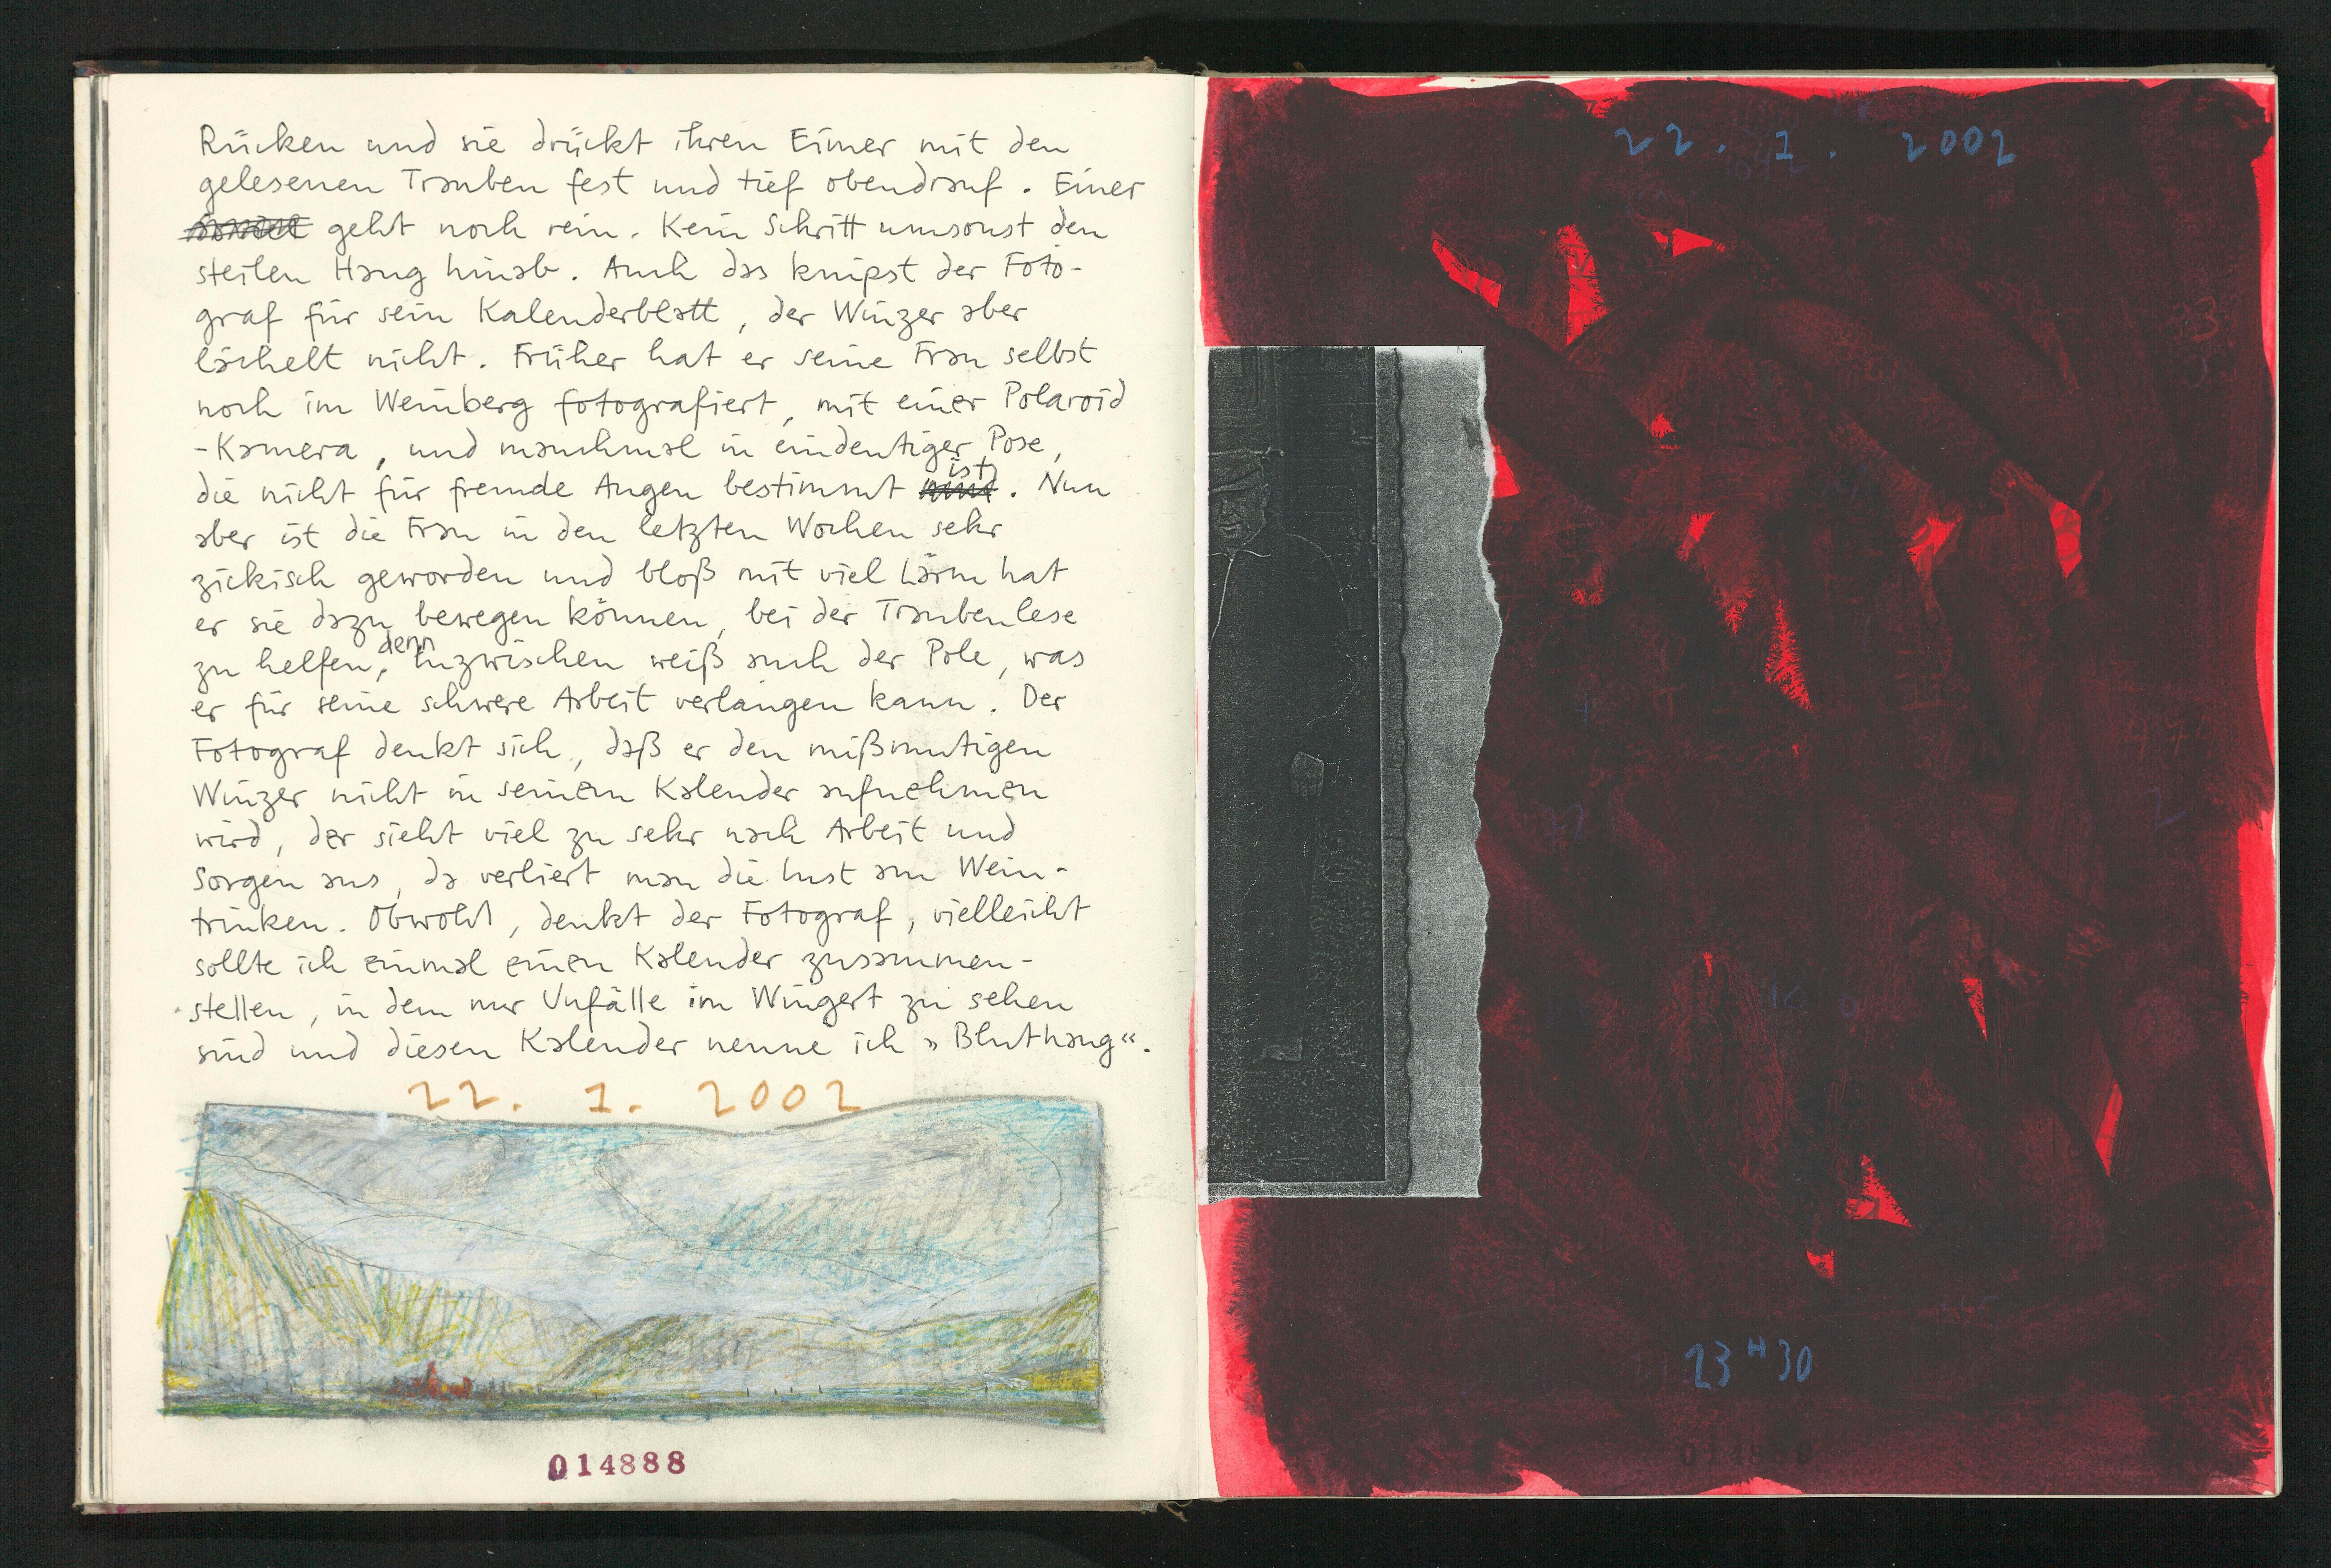 Rücken und sie drückt ihren Eimer mit den
gelesenen Trauben fest und tief obendrauf. Einer
geht noch rein. Kein Schritt umsonst den
steilen Hang hinab. Auch das knipst der Foto-
graf für sein Kalenderblatt, der Winzer aber
lächelt nicht. Früher hat er seine Frau selbst
noch im Weinberg fotografiert, mit einer Polaroid
-Kamera, und manchmal in eindeutiger Pose,
die nicht für fremde Augen bestimmt ist. Nun
aber ist die Frau in den letzten Wochen sehr
zickisch geworden und bloß mit viel Lärm hat
er sie dazu bewegen können, bei der Traubenlese
zu helfen, denn inzwischen weiß auch der Pole, was
er für seine schwere Arbeit verlangen kann. Der
Fotograf denkt sich, daß er den mißmutigen
Winzer nicht in seinem Kalender aufnehmen
wird, der sieht viel zu sehr nach Arbeit und
Sorgen aus, da verliert man die Lust am Wein-
trinken. Obwohl, denkt der Fotograf, vielleicht
sollte ich einmal einen Kalender zusammen-
stellen, in dem nur Unfälle im Wingert zu sehen
sind und diesen Kalender nenne ich »Bluthang«.
22. 1. 2002
014888
22. 1. 2002
23 H 30
014889